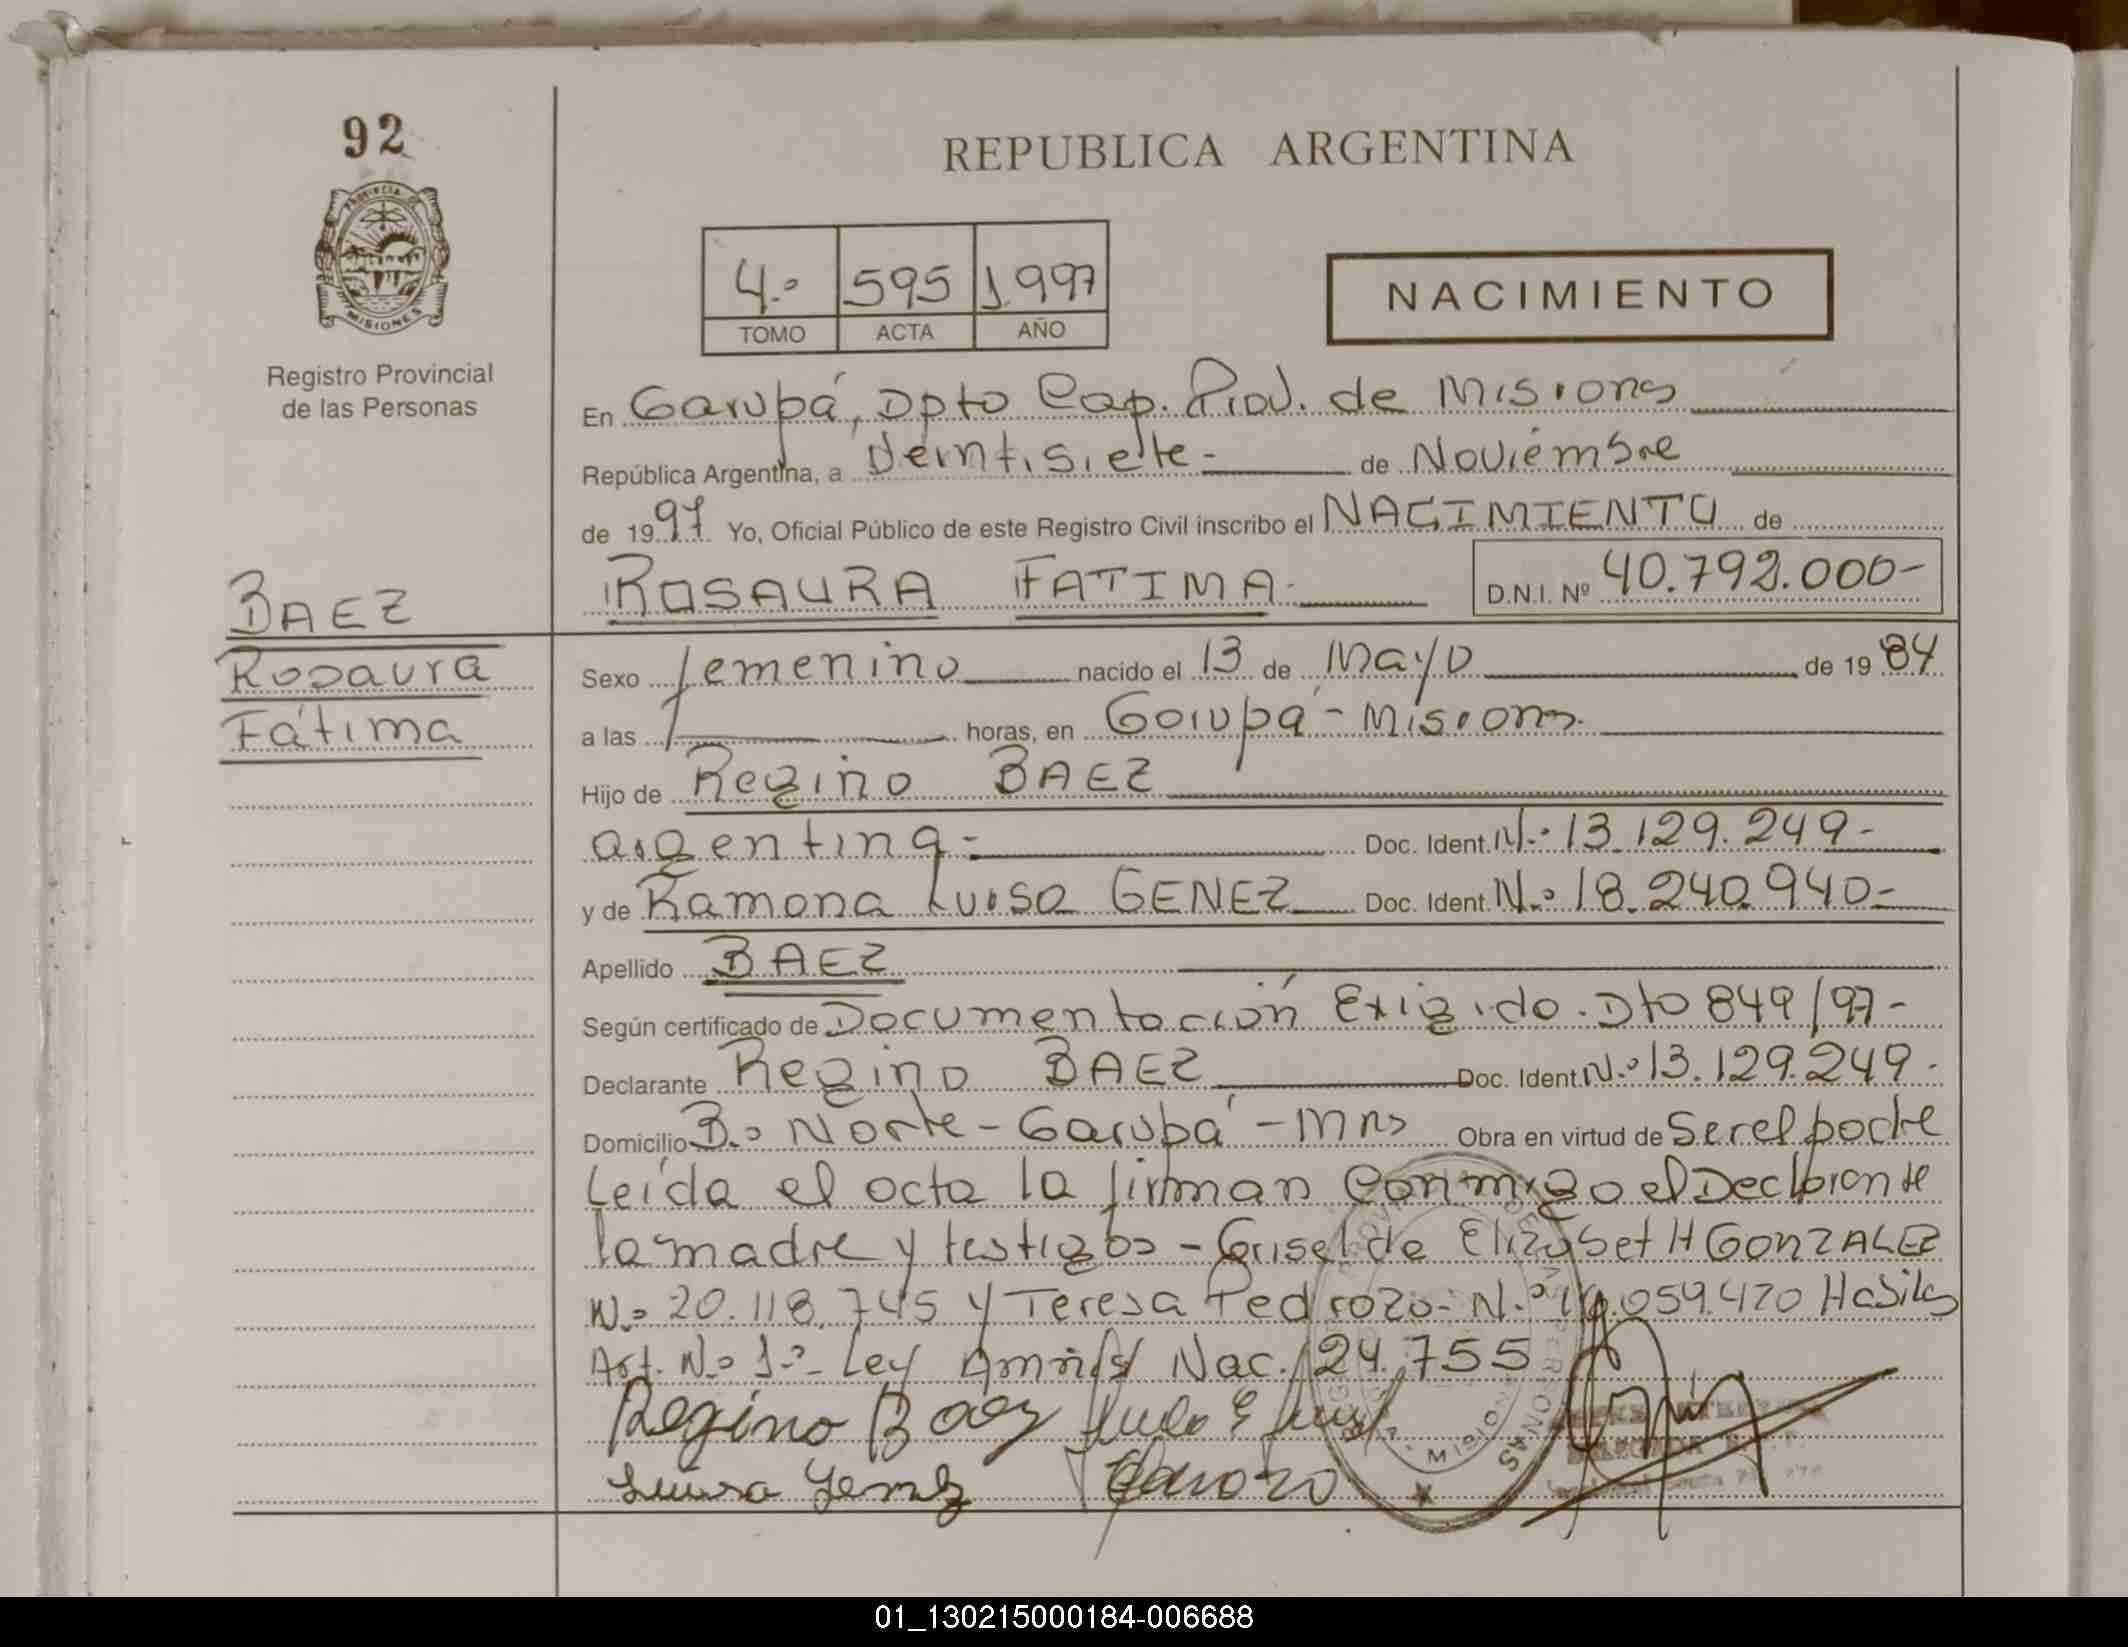 92
REPUBLICA ARGENTINA
PROVINCIA DE MISIONES
4.º 595 1.997
TOMO ACTA AÑO
NACIMIENTO
Registro Provincial
de las Personas
En Garupá, Dpto Cap. Prov. de Misiones
República Argentina, a Veintisiete - de Noviembre
de 1997 Yo, Oficial Público de este Registro Civil inscribo el NACIMIENTO de
ROSAURA FATIMA - D.N.I. Nº 40.792.000-
BAEZ
Rosaura
Fátima
Sexo femenino nacido el 13 de Mayo de 1984
a las horas, en Garupá - Misiones.
Hijo de Regino BAEZ
argentina - Doc. Ident. N.º 13.129.249-
y de Ramona Luisa GENEZ Doc. Ident. N.º 18.240.940-
Apellido BAEZ
Según certificado de Documentación Exigida. Dto 849/97-
Declarante Regino BAEZ Doc. Ident. N.º 13.129.249-
Domicilio B.º Norte - Garupá - Mnes Obra en virtud de Ser el padre
Leída el acta la firman conmigo el Declarante
la madre y testigos - Griselda Elizabet H GONZALEZ
N.º 20.118.745 y Teresa Pedrozo - N.º .059.420 Habiles
Art. N.º 1.º - Ley Nac. 24.755
Regino Baez
Luisa Genez
MISIONES
01_130215000184-006688